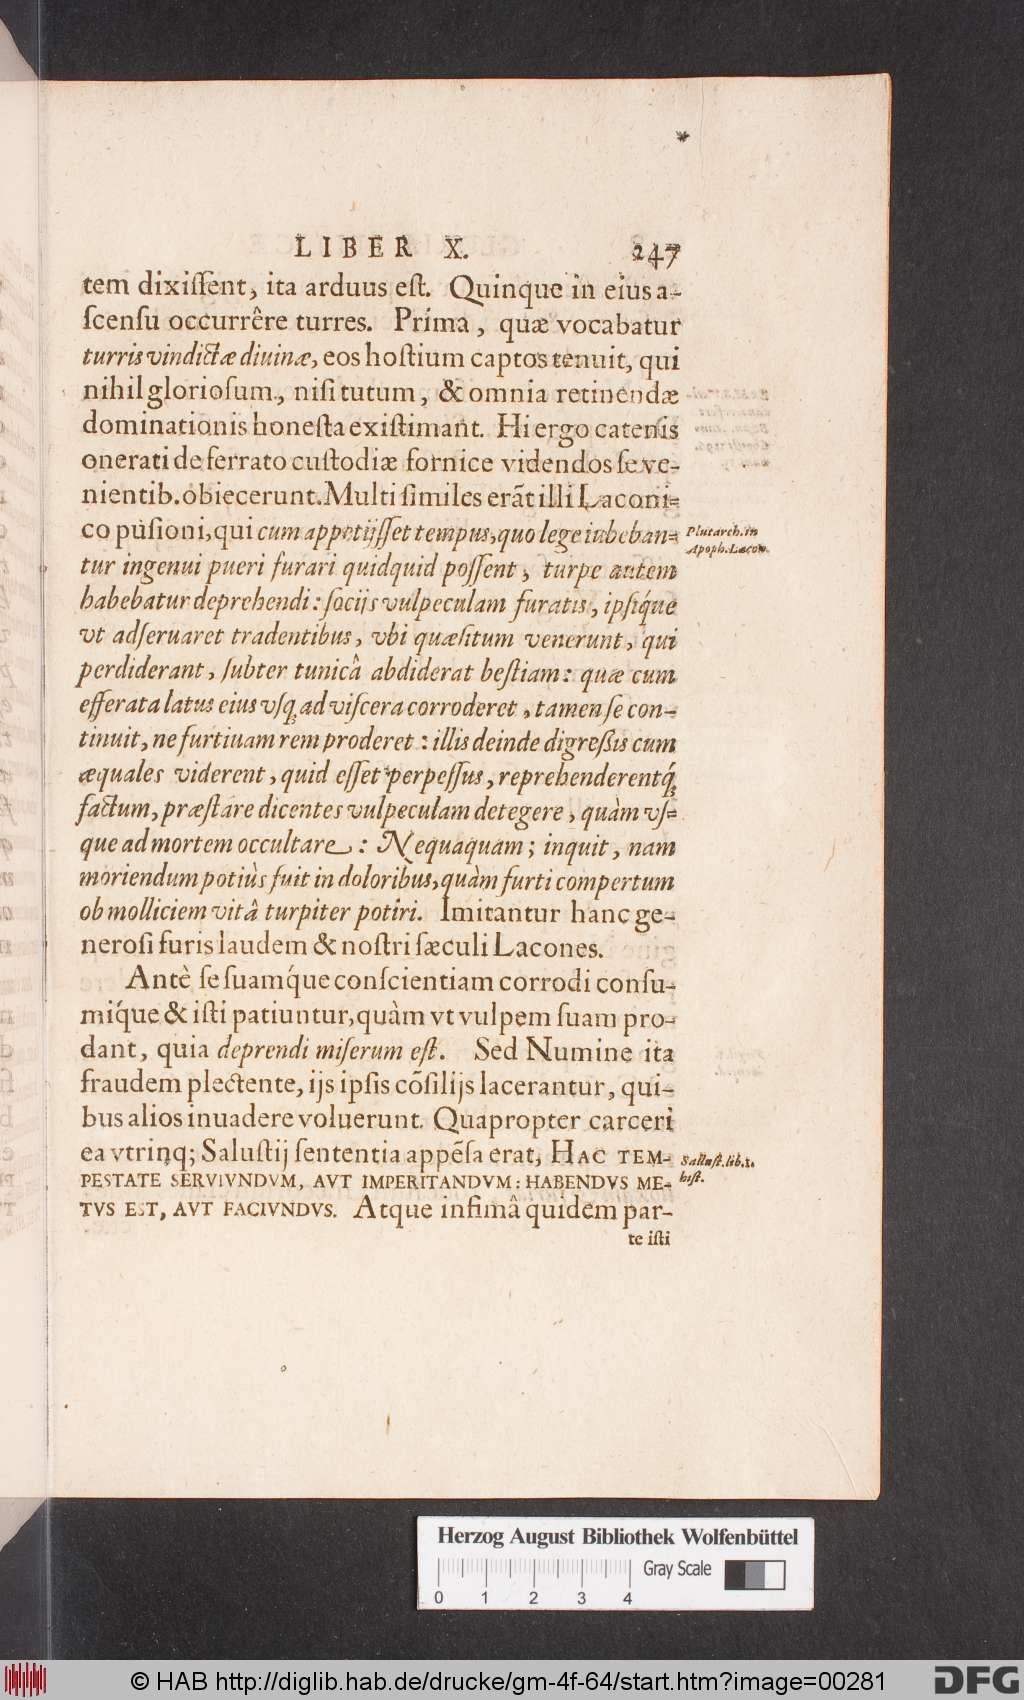 LIBER X. 247
tem dixiſſent, ita arduus eſt. Quinque in eius a-
ſcenſu occurrêre turres. Prima, quæ vocabatur
turris vindictæ diuinæ, eos hoſtium captos tenuit, qui
nihil glorioſum, niſi tutum, & omnia retinendæ
dominationis honeſta exiſtimant. Hi ergo catenis
onerati de ferrato cuſtodiæ fornice videndos ſe ve-
nientib. obiecerunt. Multi ſimiles erãt illi Laconi-
co puſioni, qui cum appetijſſet tempus, quo lege iubeban-
tur ingenui pueri furari quidquid poſſent, turpe autem
habebatur deprehendi: ſocijs vulpeculam furatis, ipſiq́ue
vt adſeruaret tradentibus, vbi quæſitum venerunt, qui
perdiderant, ſubter tunicâ abdiderat beſtiam: quæ cum
efferata latus eius vſq; ad viſcera corroderet, tamen ſe con-
tinuit, ne furtiuam rem proderet: illis deinde digreßis cum
æquales viderent, quid eſſet perpeſſus, reprehenderentq́;
factum, præſtare dicentes vulpeculam detegere, quàm vſ-
que ad mortem occultare: Nequaquam; inquit, nam
moriendum potiùs fuit in doloribus, quàm furti compertum
ob molliciem vitâ turpiter potiri. Imitantur hanc ge-
neroſi furis laudem & noſtri ſæculi Lacones.
Antè ſe ſuamq́ue conſcientiam corrodi conſu-
miq́ue & iſti patiuntur, quàm vt vulpem ſuam pro-
dant, quia deprendi miſerum eſt. Sed Numine ita
fraudem plectente, ijs ipſis cõſilijs lacerantur, qui-
bus alios inuadere voluerunt. Quapropter carceri
ea vtrinq; Saluſtij ſententia appẽſa erat, HAC TEM-
PESTATE SERVIVNDVM, AVT IMPERITANDVM: HABENDVS ME-
TVS EST, AVT FACIVNDVS. Atque infimâ quidem par-
te iſti
Plutarch. in
Apoph. Lacon.
Salluſt. lib. 1.
hiſt.
Herzog August Bibliothek Wolfenbüttel
Gray Scale
0 1 2 3 4
© HAB http://diglib.hab.de/drucke/gm-4f-64/start.htm?image=00281
DFG